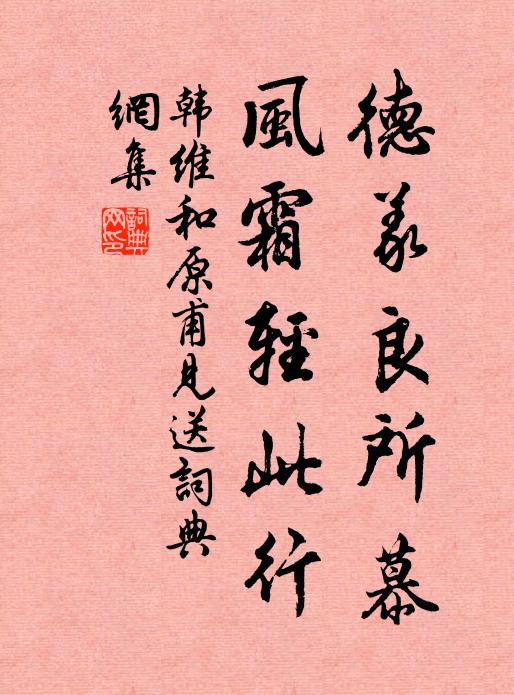 德義良所慕
風霜輕此行
韩維和原甫見送詞典
網集
詞典
网印